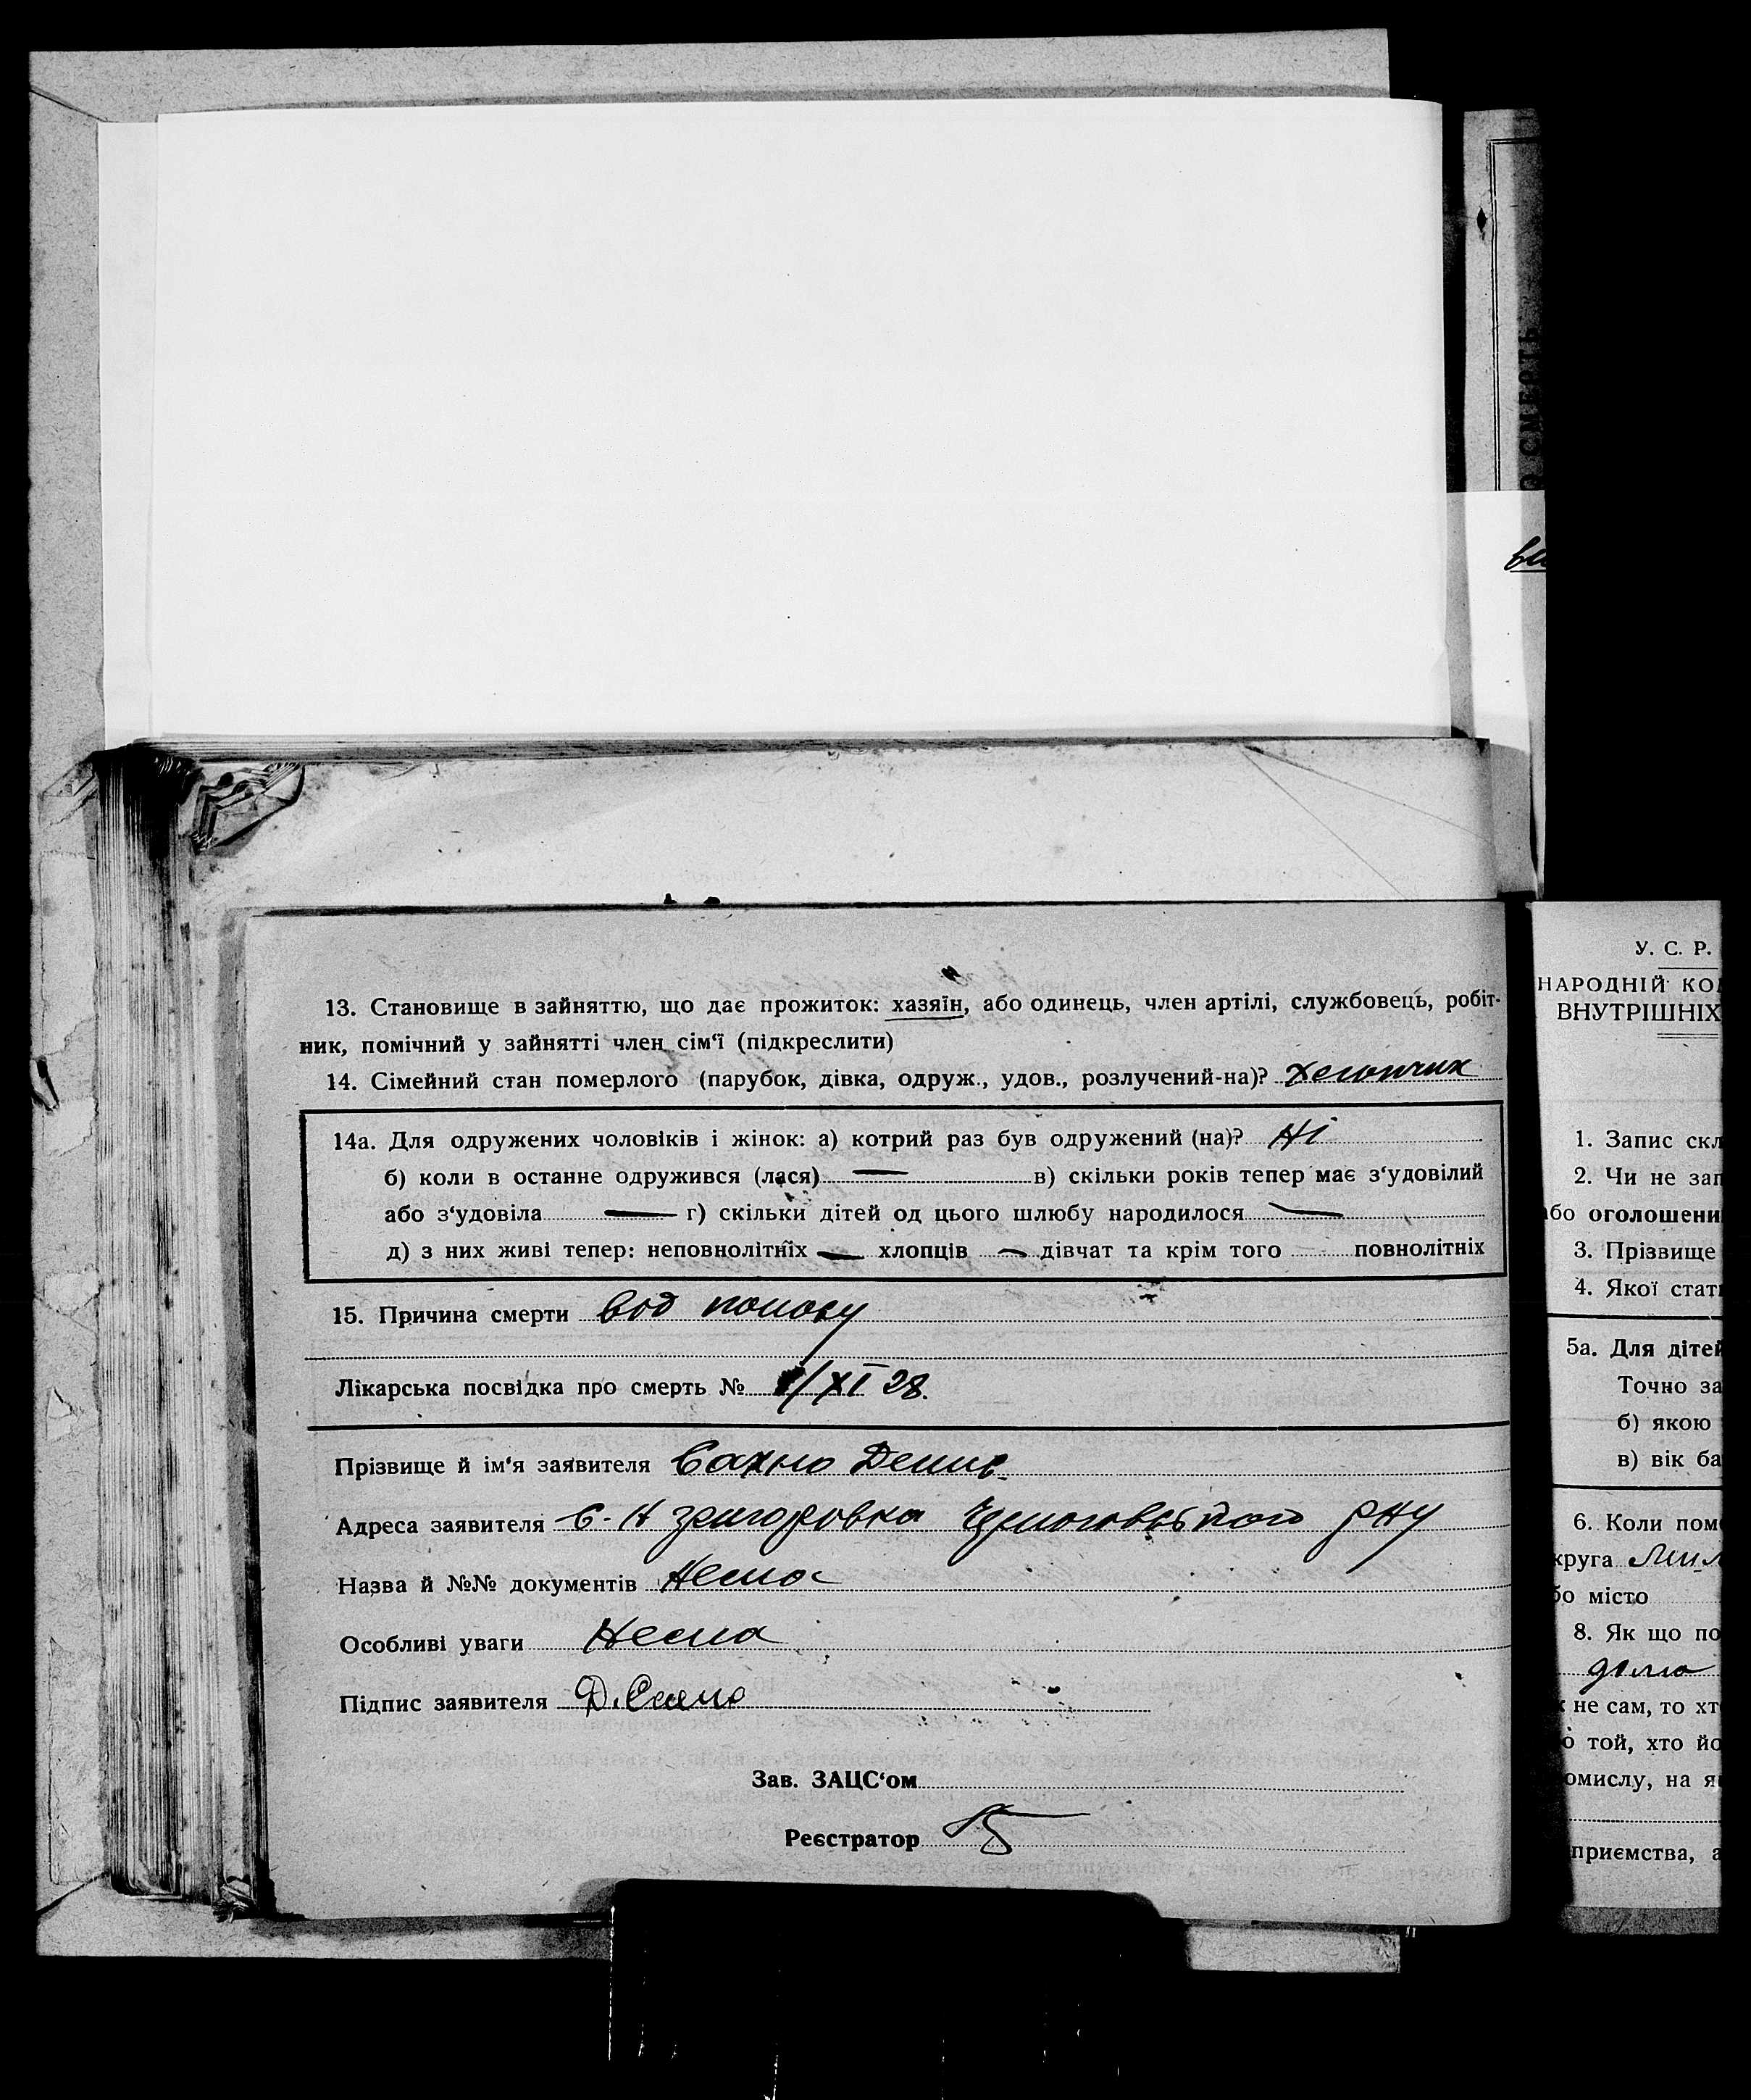 13. Становище в зайняттю, що дає прожиток: хазяїн, або одинець, член артілі, службовець, робіт-
ник, помічний у зайнятті член сім‘ї (підкреслити)
14. Сімейний стан померлого (парубок, дівка, одруж., удов., розлучений-на)? хлопчик
14а. Для одружених чоловіків і жінок: а) котрий раз був одружений (на)? Ні
б) коли в останне одружився (лася) — в) скільки років тепер має з‘удовілий
або з‘удовіла — г) скільки дітей од цього шлюбу народилося —
д) з них живі тепер: неповнолітніх — хлопців — дівчат та крім того повнолітніх
15. Причина смерти від поносу
Лікарська посвідка про смерть № 1/XI 28.
Прізвище й ім‘я заявителя Сахно Денис
Адреса заявителя с. Н Григоровка рну
Назва й №№ документів Нема
Особливі уваги Нема
Підпис заявителя Д. Сахно
Зав. ЗАЦС‘ом
Реєстратор
У. С. Р.
НАРОДНІЙ КО
ВНУТРІШНІХ
1. Запис скл
2. Чи не зап
або оголошени
3. Прізвище
4. Якої стат
5а. Для дітей
Точно за
б) якою
в) вік ба
6. Коли пом
круга
бо місто
8. Як що по
дома
не сам, то хт
той, хто йо
омислу, на я
приємства, а